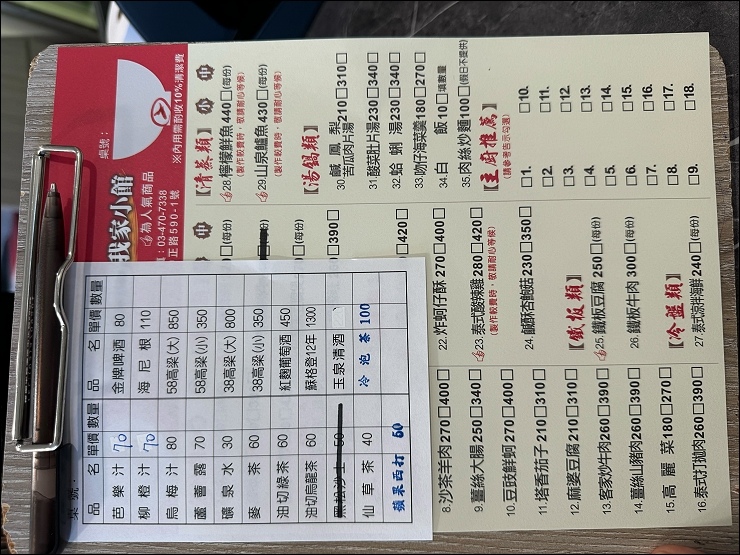 桌號：
※內用需酌收10%清潔費
我家小館
為人氣商品
: 03-470-7338
正路590-1號
桌號：
品 名 單價 數量 品 名 單價 數量
芭樂汁 70 金牌啤酒 80
柳橙汁 70 海尼根 110
烏梅汁 80 58高梁(大) 850
蘆薈露 70 58高梁(小) 350
礦泉水 30 38高梁(大) 800
麥茶 60 38高梁(小) 350
油切綠茶 60 紅麴葡萄酒 450
油切烏龍茶 60 蘇格登12年 1300
黑松沙士 50 玉泉清酒
仙草茶 40 冷泡茶 100
蘋果西打 60
8.沙茶羊肉 270□400□
9.薑絲大腸 250□340□
10.豆豉鮮蚵 270□400□
11.塔香茄子 210□310□
12.麻婆豆腐 210□310□
13.客家炒牛肉 260□390□
14.薑絲山豬肉 260□390□
15.高麗菜 180□270□
16.泰式打拋肉 260□390□
小 中
□(每份)
□(每份)
□390□
□420□
22.炸蚵仔酥 270□400□
23.泰式酸辣雞 280□420□
(製作較費時，敬請耐心等候)
24.鹹酥杏鮑菇 230□350□
【鐵板類】
25.鐵板豆腐 250□(每份)
26.鐵板牛肉 300□(每份)
【冷盤類】
27.泰式涼拌海鮮 240□(每份)
【清蒸類】 小 中
28.檸檬鮮魚 440□(每份)
(製作較費時，敬請耐心等候)
29.山泉鱸魚 430□(每份)
(製作較費時，敬請耐心等候)
【湯鍋類】
30.鹹鳳梨苦瓜肉片湯 210□310□
31.酸菜肚片湯 230□340□
32.蛤蜊湯 230□340□
33.吻仔海菜羹 180□270□
34.白飯 10□填數量
35.肉絲炒麵 100□(假日不提供)
【主廚推薦】
(請參考告示勾選)
□1. □10.
□2. □11.
□3. □12.
□4. □13.
□5. □14.
□6. □15.
□7. □16.
□8. □17.
□9. □18.